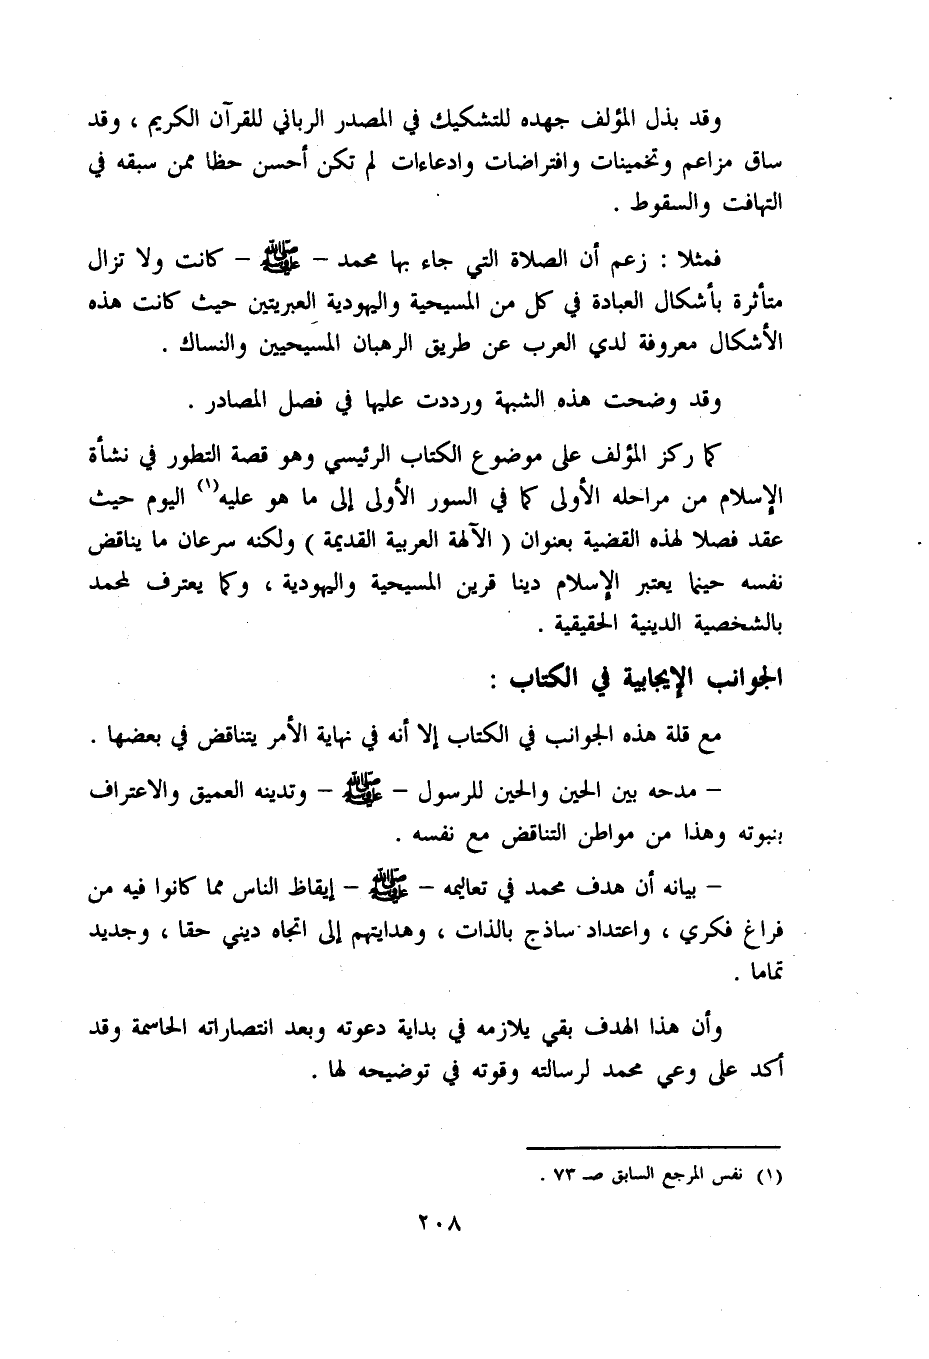 وقد بذل المؤلف جهده للتشكيك في المصدر الرباني للقرآن الكريم ، وقد
ساق مزاعم وتخمينات وافتراضات وادعاءات لم تكن أحسن حظا ممن سبقه في
التهافت والسقوط .
فمثلا : زعم أن الصلاة التي جاء بها محمد – ﷺ – كانت ولا تزال
متأثرة بأشكال العبادة في كل من المسيحية واليهودية العبريتين حيث كانت هذه
الأشكال معروفة لدي العرب عن طريق الرهبان المسيحيين والنساك .
وقد وضحت هذه الشبهة ورددت عليها في فصل المصادر .
كما ركز المؤلف على موضوع الكتاب الرئيسي وهو قصة التطور في نشأة
الإسلام من مراحله الأولى كما في السور الأولى إلى ما هو عليه(١) اليوم حيث
عقد فصلا لهذه القضية بعنوان ( الآلهة العربية القديمة ) ولكنه سرعان ما يناقض
نفسه حينما يعتبر الإسلام دينا قرين المسيحية واليهودية ، وكما يعترف لمحمد
بالشخصية الدينية الحقيقية .
الجوانب الإيجابية في الكتاب :
مع قلة هذه الجوانب في الكتاب إلا أنه في نهاية الأمر يتناقض في بعضها .
– مدحه بين الحين والحين للرسول – ﷺ – وتدينه العميق والاعتراف
بنبوته وهذا من مواطن التناقض مع نفسه .
– بيانه أن هدف محمد في تعاليمه – ﷺ – إيقاظ الناس مما كانوا فيه من
فراغ فكري ، واعتداد ساذج بالذات ، وهدايتهم إلى اتجاه ديني حقا ، وجديد
تماما .
وأن هذا الهدف بقي يلازمه في بداية دعوته وبعد انتصاراته الحاسمة وقد
أكد على وعي محمد لرسالته وقوته في توضيحه لها .
(١) نفس المرجع السابق صـ ٧٣ .
٢٠٨